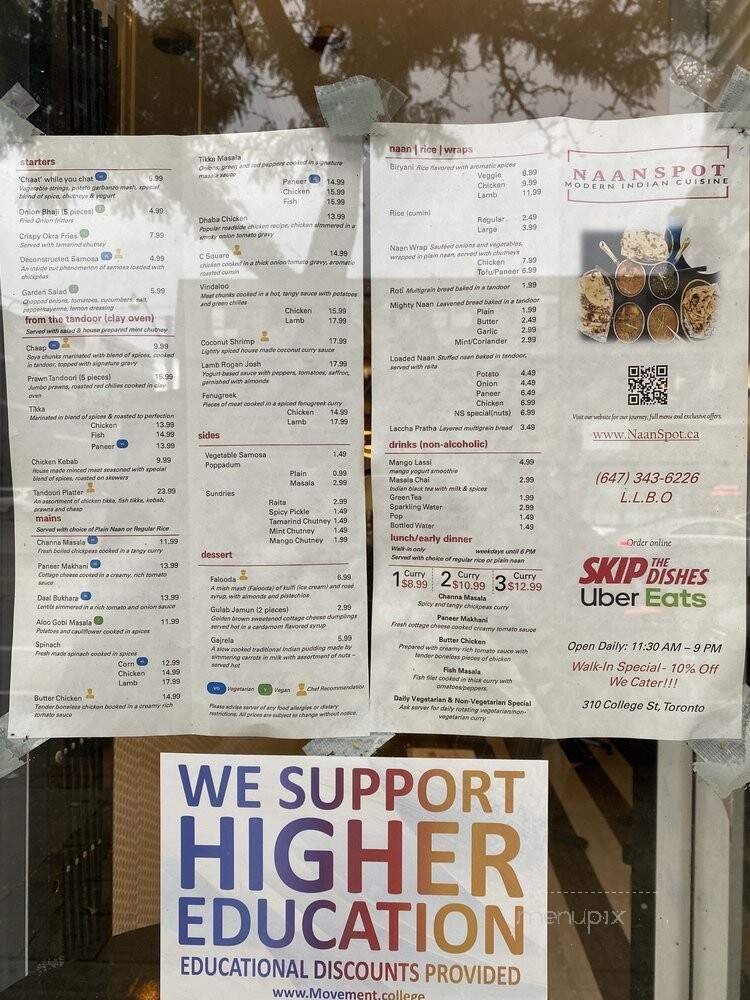 starters
'Chaat' while you chat VG 5.99
Vegetable strings, potato garbanzo mash, special
blend of spice, chutneys & yogurt
Onion Bhaji (5 pieces) V 4.99
Fried Onion fritters
Crispy Okra Fries V 7.99
Served with tamarind chutney
Deconstructed Samosa VG 4.99
An inside out phenomenon of samosa loaded with
chickpeas
Garden Salad V 5.99
Chopped onions, tomatoes, cucumbers, salt,
pepper/cayenne, lemon dressing
from the tandoor (clay oven)
Served with salad & house prepared mint chutney
Chaap VG 9.99
Soya chunks marinated with blend of spices, cooked
in tandoor, topped with signature gravy
Prawn Tandoori (5 pieces) 15.99
Jumbo prawns, roasted red chilies cooked in clay
oven
Tikka
Marinated in blend of spices & roasted to perfection
Chicken 13.99
Fish 14.99
Paneer VG 13.99
Chicken Kebab 9.99
House made minced meat seasoned with special
blend of spices, roasted on skewers
Tandoori Platter 23.99
An assortment of chicken tikka, fish tikka, kebab,
prawns and chaap
mains
Served with choice of Plain Naan or Regular Rice
Channa Masala VG 11.99
Fresh boiled chickpeas cooked in a tangy curry
Paneer Makhani VG 13.99
Cottage cheese cooked in a creamy, rich tomato
sauce
Daal Bukhara VG 13.99
Lentils simmered in a rich tomato and onion sauce
Aloo Gobi Masala V 11.99
Potatoes and cauliflower cooked in spices
Spinach
Fresh made spinach cooked in spices
Corn VG 12.99
Chicken 14.99
Lamb 17.99
Butter Chicken 14.99
Tender boneless chicken cooked in a creamy rich
tomato sauce
Tikka Masala
Onions, green and red peppers cooked in signature
masala sauce
Paneer VG 14.99
Chicken 15.99
Fish 15.99
Dhaba Chicken 13.99
Popular roadside chicken recipe, chicken simmered in a
smoky onion tomato gravy
C Square 14.99
chicken cooked in a thick onion/tomato gravy, aromatic
roasted cumin
Vindaloo
Meat chunks cooked in a hot, tangy sauce with potatoes
and green chilies
Chicken 15.99
Lamb 17.99
Coconut Shrimp 17.99
Lightly spiced house made coconut curry sauce
Lamb Rogan Josh 17.99
Yogurt-based sauce with peppers, tomatoes, saffron,
garnished with almonds
Fenugreek
Pieces of meat cooked in a spiced fenugreek curry
Chicken 14.99
Lamb 17.99
sides
Vegetable Samosa 1.49
Poppadum
Plain 0.99
Masala 2.99
Sundries
Raita 2.99
Spicy Pickle 1.49
Tamarind Chutney 1.49
Mint Chutney 1.49
Mango Chutney 1.99
dessert
Falooda 6.99
A mish mash (Falooda) of kulfi (ice cream) and rose
syrup, with almonds and pistachios
Gulab Jamun (2 pieces) 2.99
Golden brown sweetened cottage cheese dumplings
served hot in a cardamom flavored syrup
Gajrela 5.99
A slow cooked traditional Indian pudding made by
simmering carrots in milk with assortment of nuts –
served hot
VG Vegetarian V Vegan Chef Recommendation
Please advise server of any food allergies or dietary
restrictions. All prices are subject to change without notice.
naan | rice | wraps
Biryani Rice flavored with aromatic spices
Veggie 8.99
Chicken 9.99
Lamb 11.99
Rice (cumin)
Regular 2.49
Large 3.99
Naan Wrap Sauteed onions and vegetables,
wrapped in plain naan, served with chutneys
Chicken 7.99
Tofu/Paneer 6.99
Roti Multigrain bread baked in a tandoor 1.99
Mighty Naan Leavened bread baked in a tandoor
Plain 1.99
Butter 2.49
Garlic 2.99
Mint/Coriander 2.99
Loaded Naan Stuffed naan baked in tandoor,
served with raita
Potato 4.49
Onion 4.49
Paneer 6.49
Chicken 6.99
NS special(nuts) 6.99
Laccha Pratha Layered multigrain bread 3.49
drinks (non-alcoholic)
Mango Lassi 4.99
mango yogurt smoothie
Masala Chai 2.99
Indian black tea with milk & spices
Green Tea 1.99
Sparkling Water 2.99
Pop 1.49
Bottled Water 1.49
lunch/early dinner
Walk-in only weekdays until 6 PM
Served with choice of regular rice or plain naan
1 Curry $8.99 2 Curry $10.99 3 Curry $12.99
Channa Masala
Spicy and tangy chickpeas curry
Paneer Makhani
Fresh cottage cheese cooked creamy tomato sauce
Butter Chicken
Prepared with creamy rich tomato sauce with
tender boneless pieces of chicken
Fish Masala
Fish filet cooked in thick curry with
onatoes/peppers.
Daily Vegetarian & Non-Vegetarian Special
Ask server for daily rotating vegetarian/non-
vegetarian curry
NAANSPOT
MODERN INDIAN CUISINE
Visit our website for our journey, full menu and exclusive offers.
www.NaanSpot.ca
(647) 343-6226
L.L.B.O
Order online
SKIP THE DISHES
Uber Eats
Open Daily: 11:30 AM – 9 PM
Walk-In Special - 10% Off
We Cater!!!
310 College St, Toronto
WE SUPPORT
HIGHER
EDUCATION
EDUCATIONAL DISCOUNTS PROVIDED
www.Movement.college
menupix